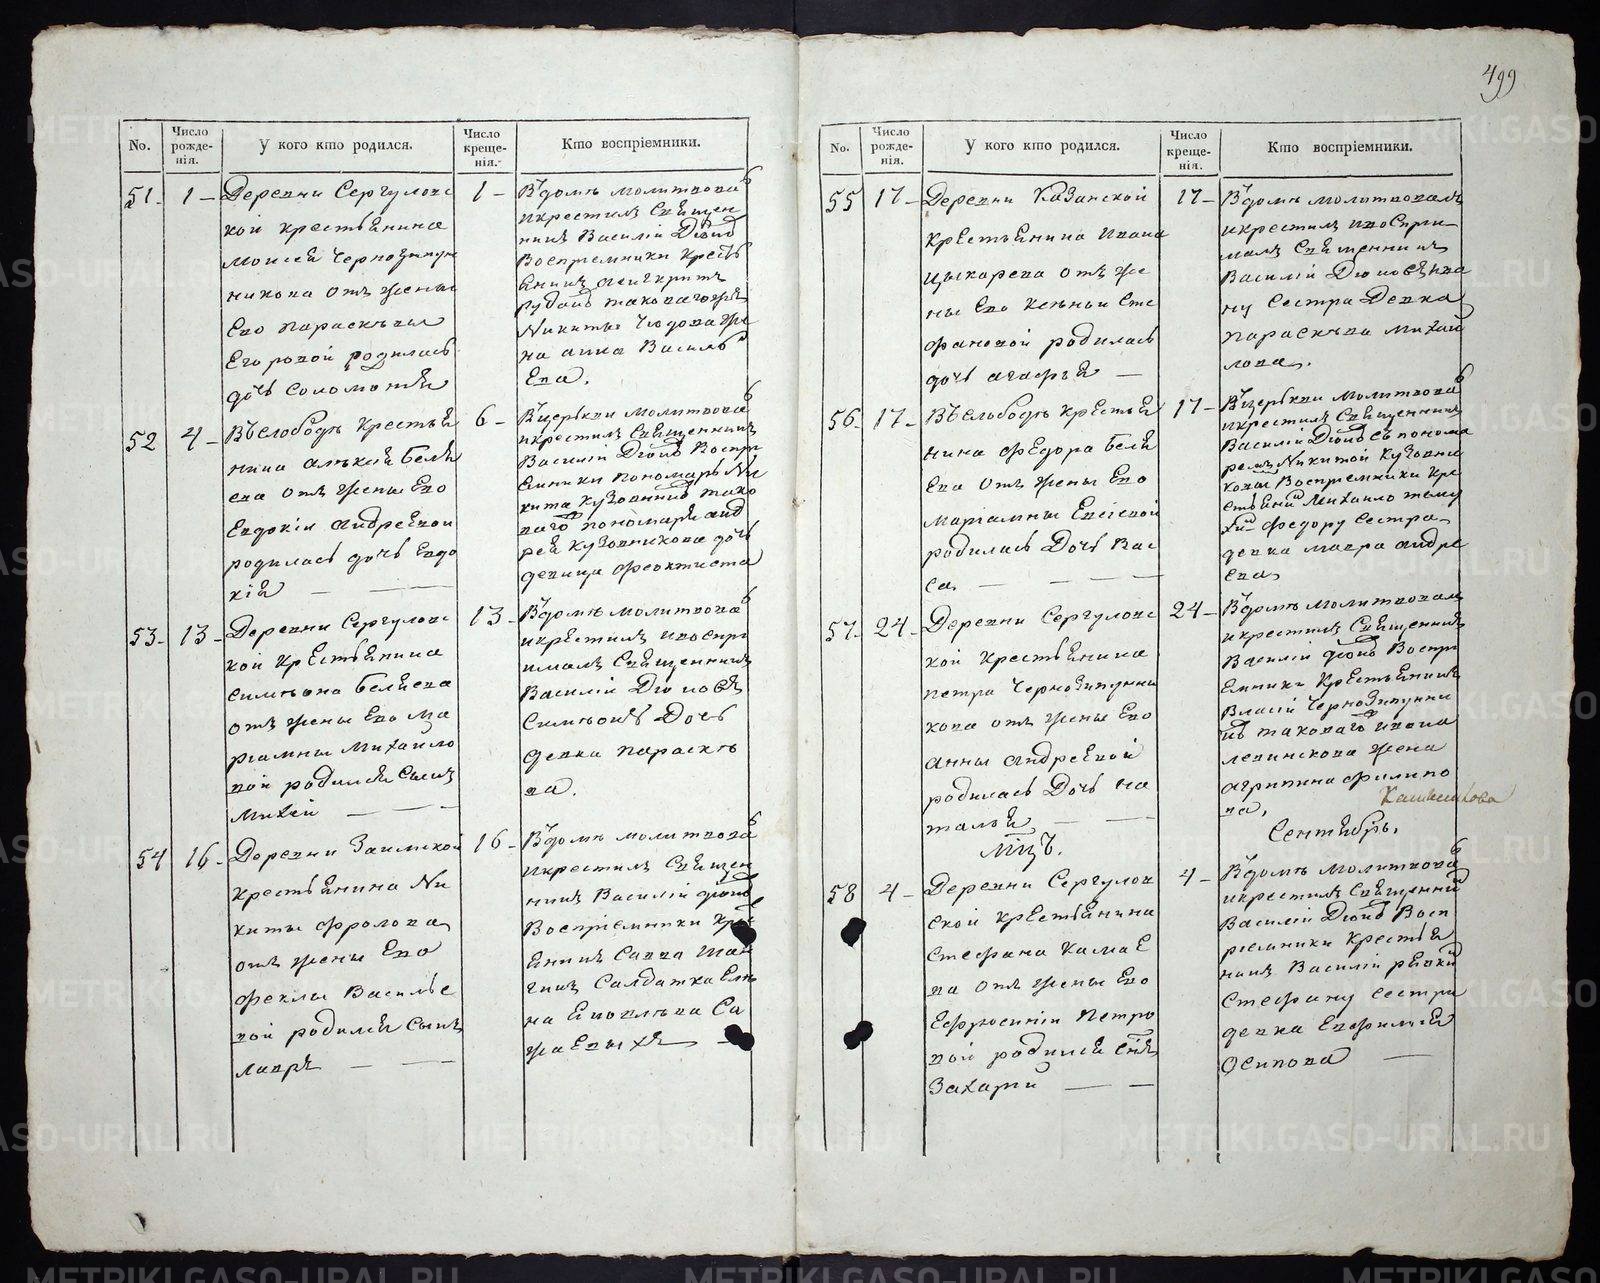 499
No.
Число рожде-нія.
У кого кто родился.
Число креще-нія.
Кто воспріемники.
51. 1 —
Деревни Сергуловс
кой крестьянина
Моисея Чернозипун
никова отъ жены
Его Параскевы
Егоровой родилась
дочь Соломонія
1 —
Въ домѣ молитвова
и крестилъ Священ
никъ Василій
Воспріемники Крест
Никиты Чюдова же
на Анна Василь
Ева.
52 4 —
Въ Слободѣ крестья
нина Алексѣя Беля
ева отъ жены Его
Евдокіи Андреевой
родилась дочь Евдо
кія
6 —
Въ церькви молитвова
и крестилъ Священникъ
Василій Воспрі
емники Пономарь Ни
кита Кузовниковъ тако
ваго пономаря Анд
рея Кузовникова дочь
девица Феоктиста
53. 13 —
Деревни Сергуловс
кой крестьянина
Симеона Беляева
отъ жены Его Ма
ріамны Михайло
вой родился сынъ
Михей
13 —
Въ домѣ молитвова
и крестилъ и воспри
ималъ Священникъ
Василій
Симеонъ Дочь
девка Параске
ва.
54 16 —
Деревни Заимской
крестьянина Ни
киты Фролова
отъ жены Его
Феклы Василье
вой родился сынъ
Лавръ
16 —
Въ домѣ молитвова
и крестилъ Священ
никъ Василій
Воспріемники Крес
янинъ Савва
Салдатка Еле
на
No.
Число рожде-нія.
У кого кто родился.
Число креще-нія.
Кто воспріемники.
55 17 —
Деревни Казанской
крестьянина Ивана
Цыкарева отъ же
ны Его Ксеньи Сте
фановой родилась
дочь Агафья —
17 —
Въ домѣ молитвовалъ
и крестилъ и воспри
малъ Священникъ
Василій
ну сестра Девка
Параскева Михай
лова.
56. 17 —
Въ Слободѣ крестья
нина Федора Беля
Ева отъ жены Его
Маріамны Евсіевой
родилась Дочь Вас
са.
17 —
Въ церькви молитвова
и крестилъ Священникъ
Василій съ понома
ремъ Никитой Кузовни
ковы Воспріемники Кре
стьянин Михайло тему
Федору сестра
девка Мавра Андре
ева
57. 24 —
Деревни Сергуловс
кой крестьянина
Петра Чернозипунни
кова отъ жены Его
Анны Андреевой
родилась Дочь На
талья
24 —
Въ домѣ молитвовалъ
и крестилъ Священникъ
Василій Воспрі
Емники Крестьянинъ
Власій Чернозипунни
въ таковаго Ивана
Левинскова жена
Агрипина Филипо
ва.
Мцъ.
Сентябрь.
58 4 —
Деревни Сергулов
ской крестьянина
Стефана Камае
ва отъ жены Его
Ефросиніи Петро
вой родился сынъ
Захарій
4 —
Въ домѣ молитвова
и крестилъ Священни
Василій Восп
ріемники Крестья
нинъ Василій
Стефану сестра
девка Евфимія
Осипова